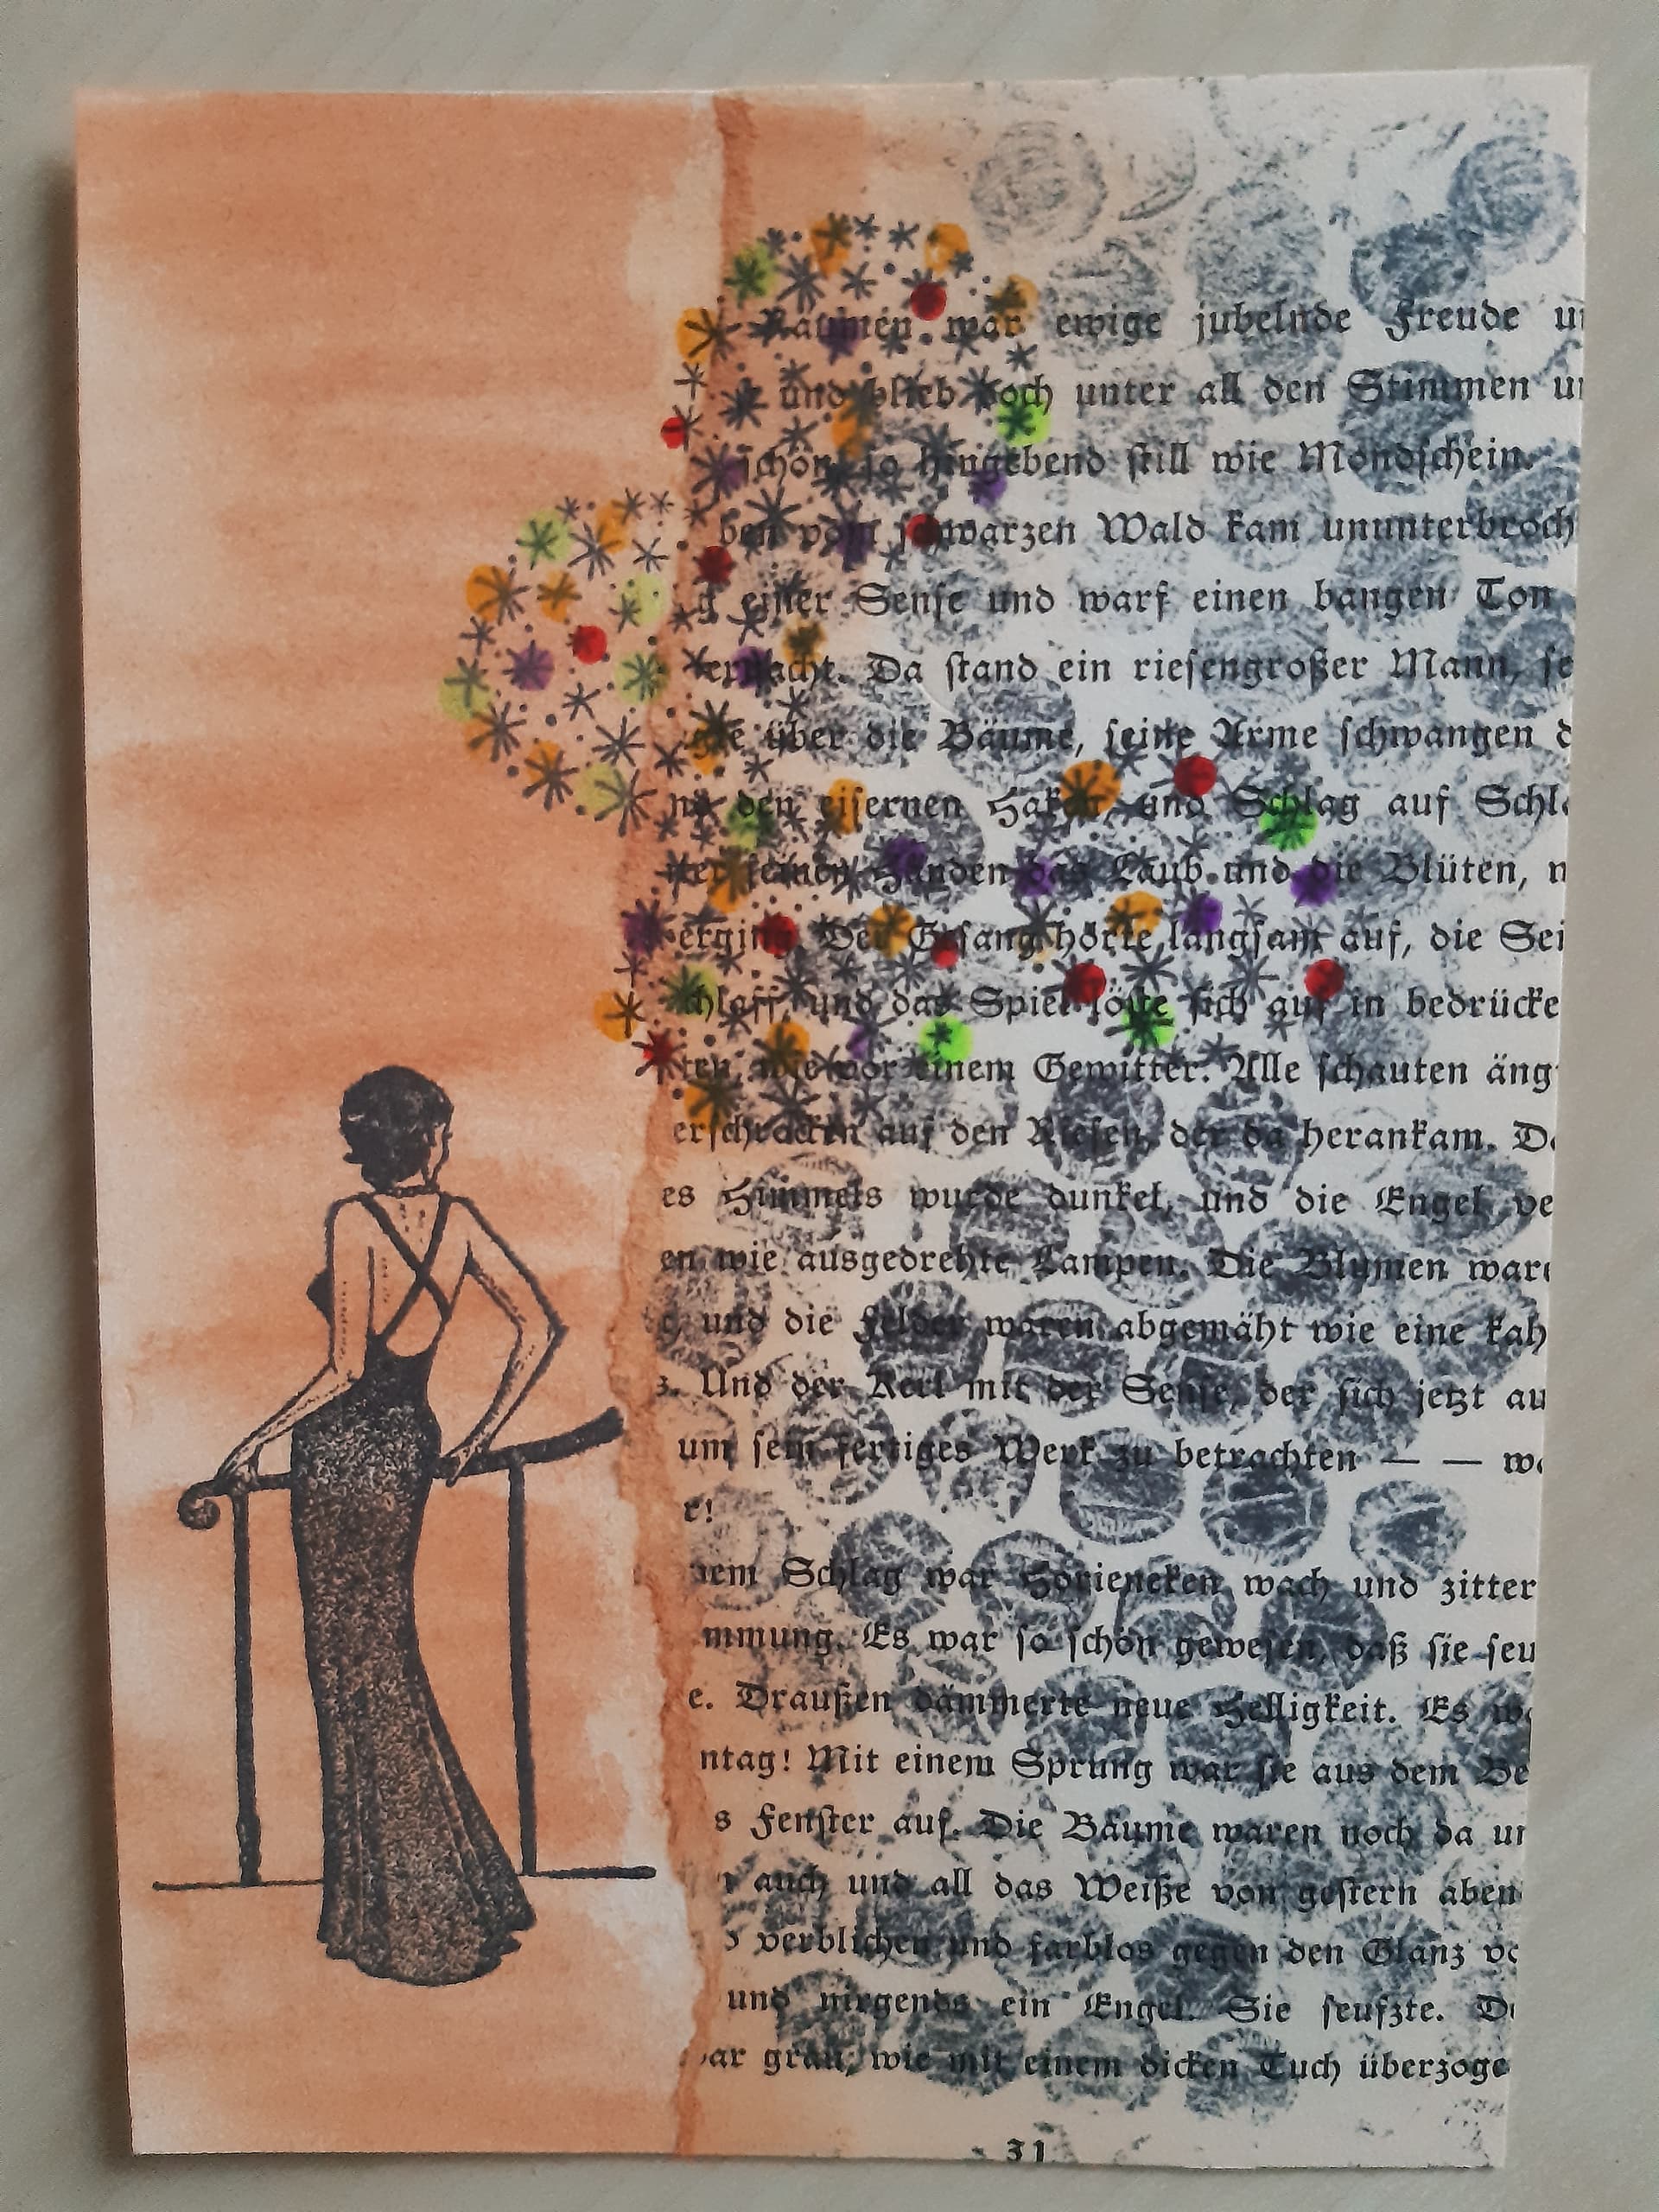 Räumen war ewige jubelnde Freude u
und blieb doch unter all den Stimmen u
schön, so hingebend still wie Mondschein.
ben vom schwarzen Wald kam ununterbroch
g einer Sense und warf einen bangen Ton
ernacht. Da stand ein riesengroßer Mann, se
gte über die Bäume, seine Arme schwangen d
nd den eisernen Haken, und Schlag auf Schl
ter seinen Händen das Laub und die Blüten, n
erging. Der Gesang hörte langsam auf, die Sei
schlaff, und das Spiel löste sich auf in bedrücke
ten, wie vor einem Gewitter. Alle schauten äng
erschrocken auf den Riesen, der da herankam. D
es Himmels wurde dunkel, und die Engel ve
en wie ausgedrehte Lampen. Die Blumen ware
g, und die Felder waren abgemäht wie eine kah
z. Und der Kerl mit der Sense, der sich jetzt au
um sein fertiges Werk zu betrachten — — w
r!
nem Schlag war wach und zitter
mmung. Es war so schön gewesen, daß sie seu
e. Draußen dämmerte neue Helligkeit. Es w
ntag! Mit einem Sprung war sie aus dem Be
s Fenster auf. Die Bäume waren noch da un
auch und all das Weiße von gestern aben
verblichen und farblos gegen den Glanz vo
und nirgends ein Engel. Sie seufzte. D
ar grau, wie mit einem dicken Tuch überzoge
31